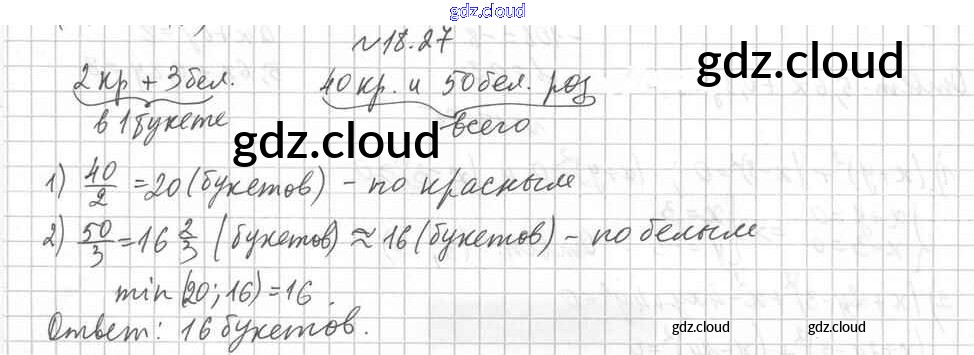 gdz.cloud
№18.27
gdz.cloud
2 кр + 3 бел. 40 кр. и 50 бел. роз
в 1 букете всего
gdz.cloud
1) 40/2 = 20 (букетов) - по красным
2) 50/3 = 16 2/3 (букетов) ≈ 16 (букетов) - по белым
min (20; 16) = 16.
Ответ: 16 букетов.
gdz.cloud gdz.cloud